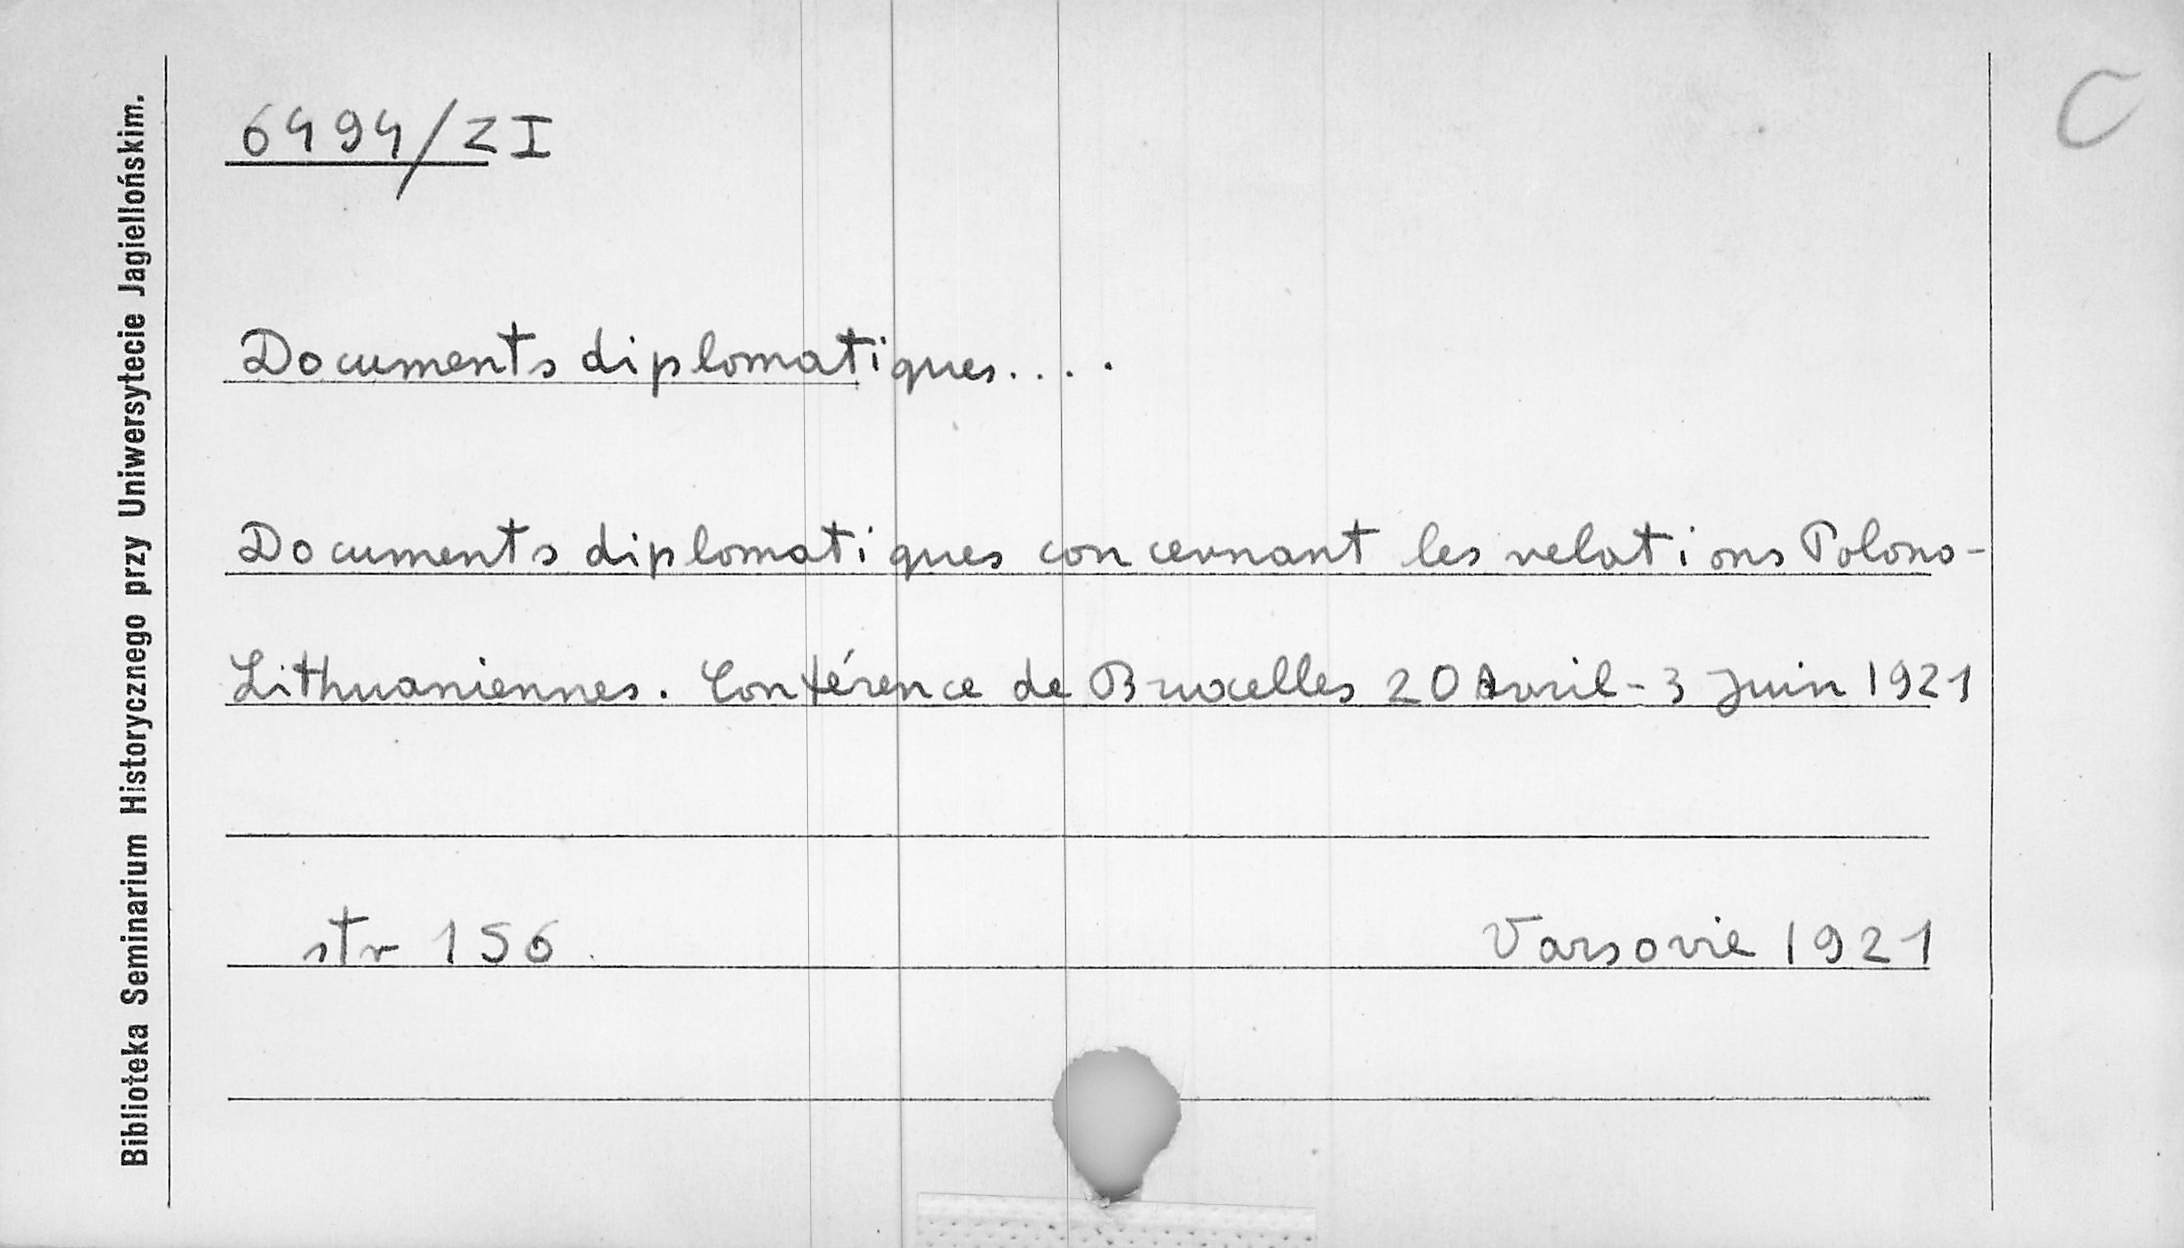 6494/ZI
C
Documents diplomatiques....
Documents diplomatiques concernant les relations Polono-
Lithuaniennes. Conférence de Bruxelles 20 Avril - 3 Juin 1921
str 156.
Varsovie 1921
Biblioteka Seminarium Historycznego przy Uniwersytecie Jagiellońskim.